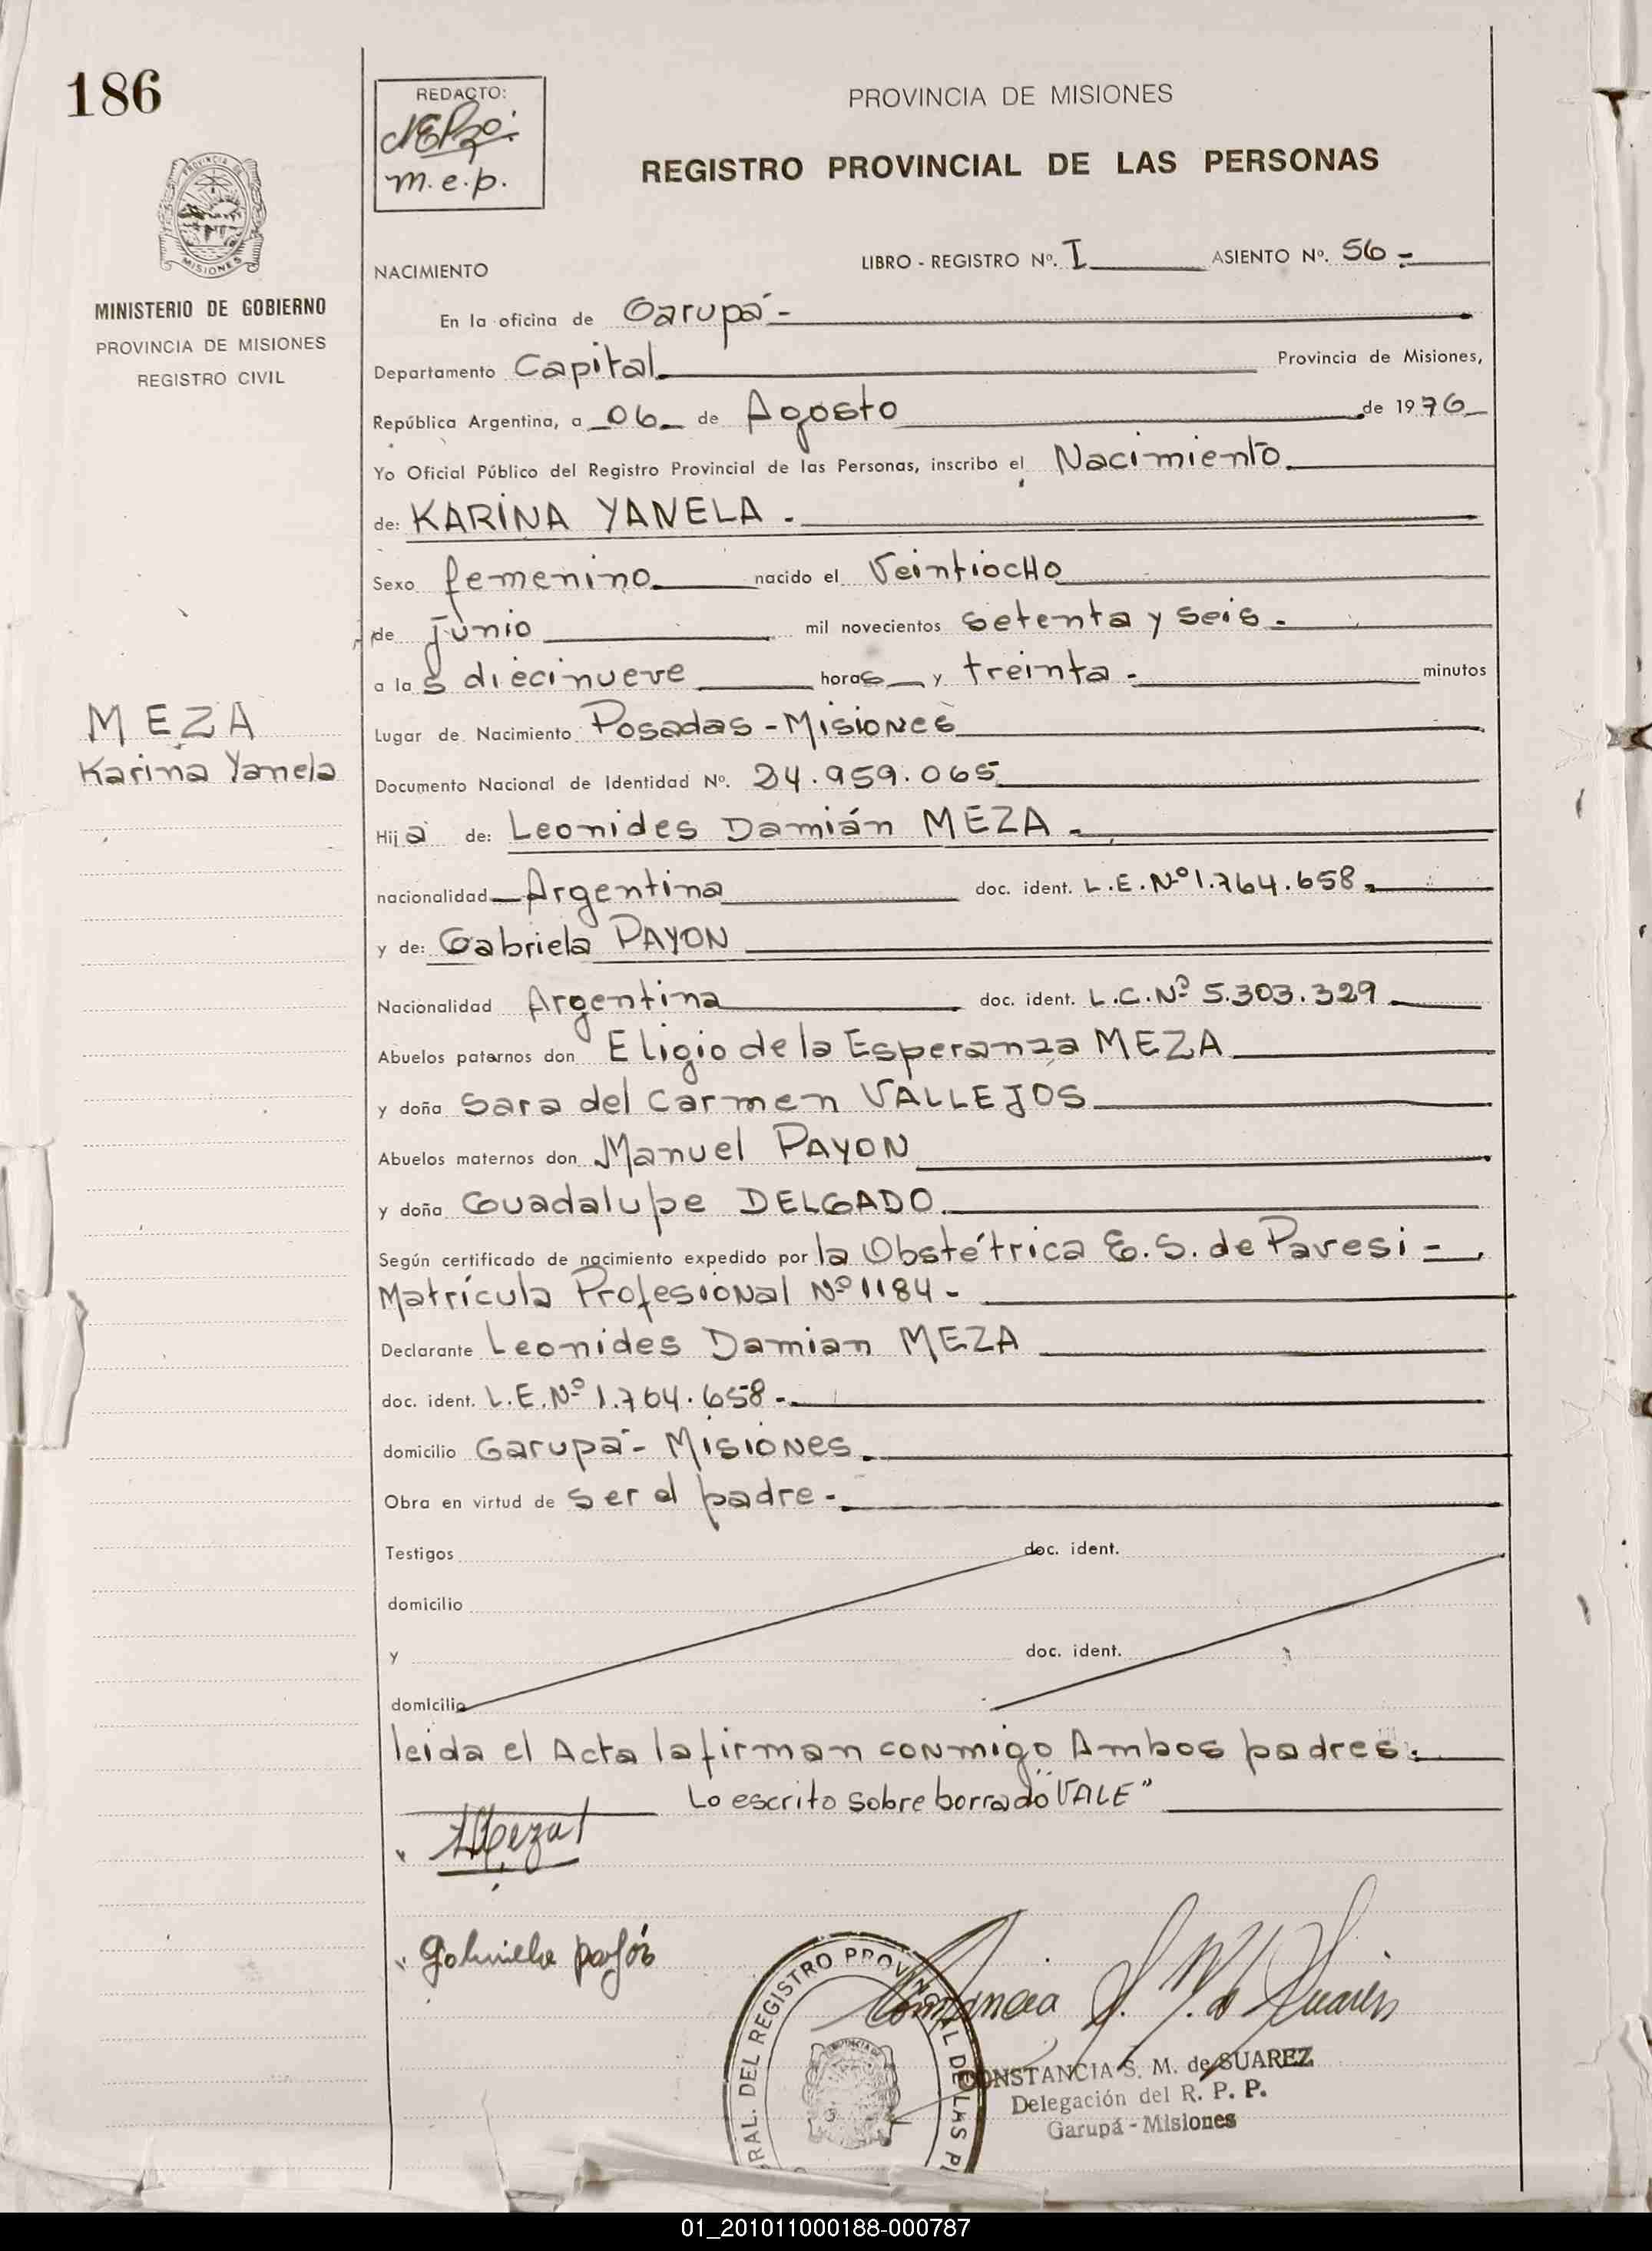 186
REDACTO:
m.e.p.
PROVINCIA DE MISIONES
REGISTRO PROVINCIAL DE LAS PERSONAS
PROVINCIA DE
MISIONES
MINISTERIO DE GOBIERNO
PROVINCIA DE MISIONES
REGISTRO CIVIL
NACIMIENTO
LIBRO - REGISTRO Nº. I ASIENTO Nº. 56 -
En la oficina de Garupá -
Departamento Capital. Provincia de Misiones,
República Argentina, a 06 de Agosto de 1976
Yo Oficial Público del Registro Provincial de las Personas, inscribo el Nacimiento.
de: KARINA YANELA -
Sexo femenino nacido el VeintiocHo
de junio mil novecientos setenta y seis -
a las diecinueve horas y treinta - minutos
Lugar de Nacimiento Posadas - Misiones
MEZA
Karina Yanela
Documento Nacional de Identidad Nº. 24.959.065
Hija de: Leonides Damián MEZA -
nacionalidad Argentina doc. ident. L.E. Nº 1.764.658.
y de: Gabriela PAYON
Nacionalidad Argentina doc. ident. L.C. Nº 5.303.329
Abuelos paternos don Eligio de la Esperanza MEZA
y doña Sara del Carmen VALLEJOS
Abuelos maternos don Manuel PAYON
y doña Guadalupe DELGADO
Según certificado de nacimiento expedido por la Obstétrica E.S. de Pavesi -
Matrícula Profesional Nº 1184 -
Declarante Leonides Damian MEZA
doc. ident. L.E. Nº 1.764.658 -
domicilio Garupá - Misiones.
Obra en virtud de ser el padre -
Testigos doc. ident.
domicilio
y doc. ident.
domicilio
leida el Acta la firman conmigo Ambos padres.
Lo escrito sobre borrado "VALE"
Meza
Gabriela payón
Constancia S. M. de Suarez
RAL. DEL REGISTRO PROVINCIAL DE LAS P
CONSTANCIA S. M. de SUAREZ
Delegación del R. P. P.
Garupá - Misiones
01_201011000188-000787